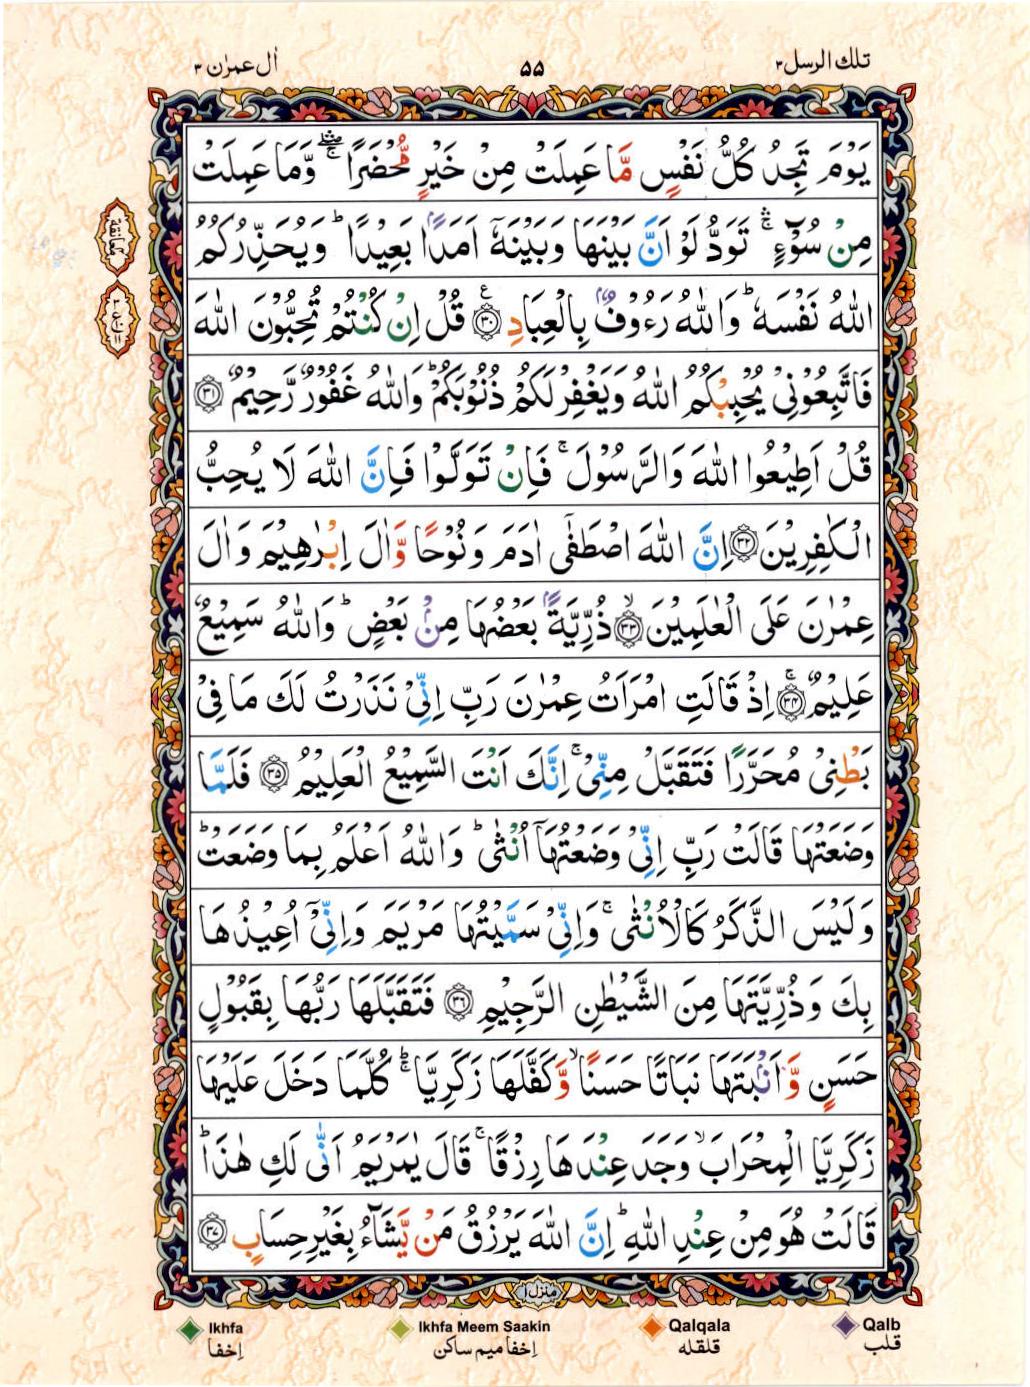 تلك الرسل ٣
٥٥
اٰل عمرٰن ٣
يَوْمَ تَجِدُ كُلُّ نَفْسٍ مَّا عَمِلَتْ مِنْ خَيْرٍ مُّحْضَرًا ۛۖۚ وَّمَا عَمِلَتْ
مِنْ سُوْٓءٍ ۛۚ تَوَدُّ لَوْ اَنَّ بَيْنَهَا وَبَيْنَهٗٓ اَمَدًۢا بَعِيْدًا ؕ وَيُحَذِّرُكُمُ
اللّٰهُ نَفْسَهٗ ؕ وَاللّٰهُ رَءُوْفٌۢ بِالْعِبَادِ ﴿٣٠﴾ ع قُلْ اِنْ كُنْتُمْ تُحِبُّوْنَ اللّٰهَ
فَاتَّبِعُوْنِيْ يُحْبِبْكُمُ اللّٰهُ وَيَغْفِرْ لَكُمْ ذُنُوْبَكُمْ ؕ وَاللّٰهُ غَفُوْرٌ رَّحِيْمٌ ﴿٣١﴾
قُلْ اَطِيْعُوا اللّٰهَ وَالرَّسُوْلَ ۚ فَاِنْ تَوَلَّوْا فَاِنَّ اللّٰهَ لَا يُحِبُّ
الْكٰفِرِيْنَ ﴿٣٢﴾ اِنَّ اللّٰهَ اصْطَفٰٓى اٰدَمَ وَنُوْحًا وَّاٰلَ اِبْرٰهِيْمَ وَاٰلَ
عِمْرٰنَ عَلَى الْعٰلَمِيْنَ ۙ﴿٣٣﴾ ذُرِّيَّةًۢ بَعْضُهَا مِنْۢ بَعْضٍ ؕ وَاللّٰهُ سَمِيْعٌ
عَلِيْمٌ ۚ﴿٣٤﴾ اِذْ قَالَتِ امْرَاَتُ عِمْرٰنَ رَبِّ اِنِّيْ نَذَرْتُ لَكَ مَا فِيْ
بَطْنِيْ مُحَرَّرًا فَتَقَبَّلْ مِنِّيْ ۚ اِنَّكَ اَنْتَ السَّمِيْعُ الْعَلِيْمُ ﴿٣٥﴾ فَلَمَّا
وَضَعَتْهَا قَالَتْ رَبِّ اِنِّيْ وَضَعْتُهَاۤ اُنْثٰى ؕ وَاللّٰهُ اَعْلَمُ بِمَا وَضَعَتْ ؕ
وَلَيْسَ الذَّكَرُ كَالْاُنْثٰى ۚ وَاِنِّيْ سَمَّيْتُهَا مَرْيَمَ وَاِنِّيْٓ اُعِيْذُهَا
بِكَ وَذُرِّيَّتَهَا مِنَ الشَّيْطٰنِ الرَّجِيْمِ ﴿٣٦﴾ فَتَقَبَّلَهَا رَبُّهَا بِقَبُوْلٍ
حَسَنٍ وَّاَنْۢبَتَهَا نَبَاتًا حَسَنًا ۙ وَّكَفَّلَهَا زَكَرِيَّا ؕۚ كُلَّمَا دَخَلَ عَلَيْهَا
زَكَرِيَّا الْمِحْرَابَ ۙ وَجَدَ عِنْدَهَا رِزْقًا ۚ قَالَ يٰمَرْيَمُ اَنّٰى لَكِ هٰذَا ؕ
قَالَتْ هُوَ مِنْ عِنْدِ اللّٰهِ ؕ اِنَّ اللّٰهَ يَرْزُقُ مَنْ يَّشَآءُ بِغَيْرِ حِسَابٍ ﴿٣٧﴾
منزل ١
Ikhfa
Ikhfa Meem Saakin
Qalqala
Qalb
اِخفا
اِخفا ميم ساكن
قلقله
قلب